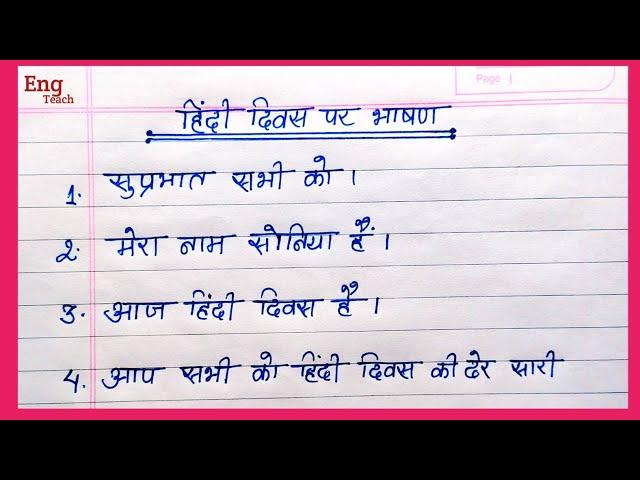 Eng
Teach
Page
हिंदी दिवस पर भाषण
1. सुप्रभात सभी को।
2. मेरा नाम सोनिया हैं।
3. आज हिंदी दिवस है।
4. आप सभी को हिंदी दिवस की ढेर सारी